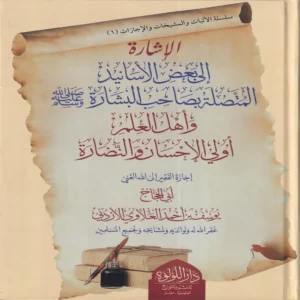 سلسلة الأثبات والمشيخات والإجازات (١)
الإشارة
إلى بعض الأسانيد
المتصلة بصاحب البشارة ﷺ
وأهل العلم
أولي الإحسان والنضارة
إجازة الفقير إلى الله الغني
أبي الحجاج
يوسف بن أحمد العلاوي الأردني
غفر الله له ولوالديه ولمشايخه ولجميع المسلمين
دار اللؤلؤة